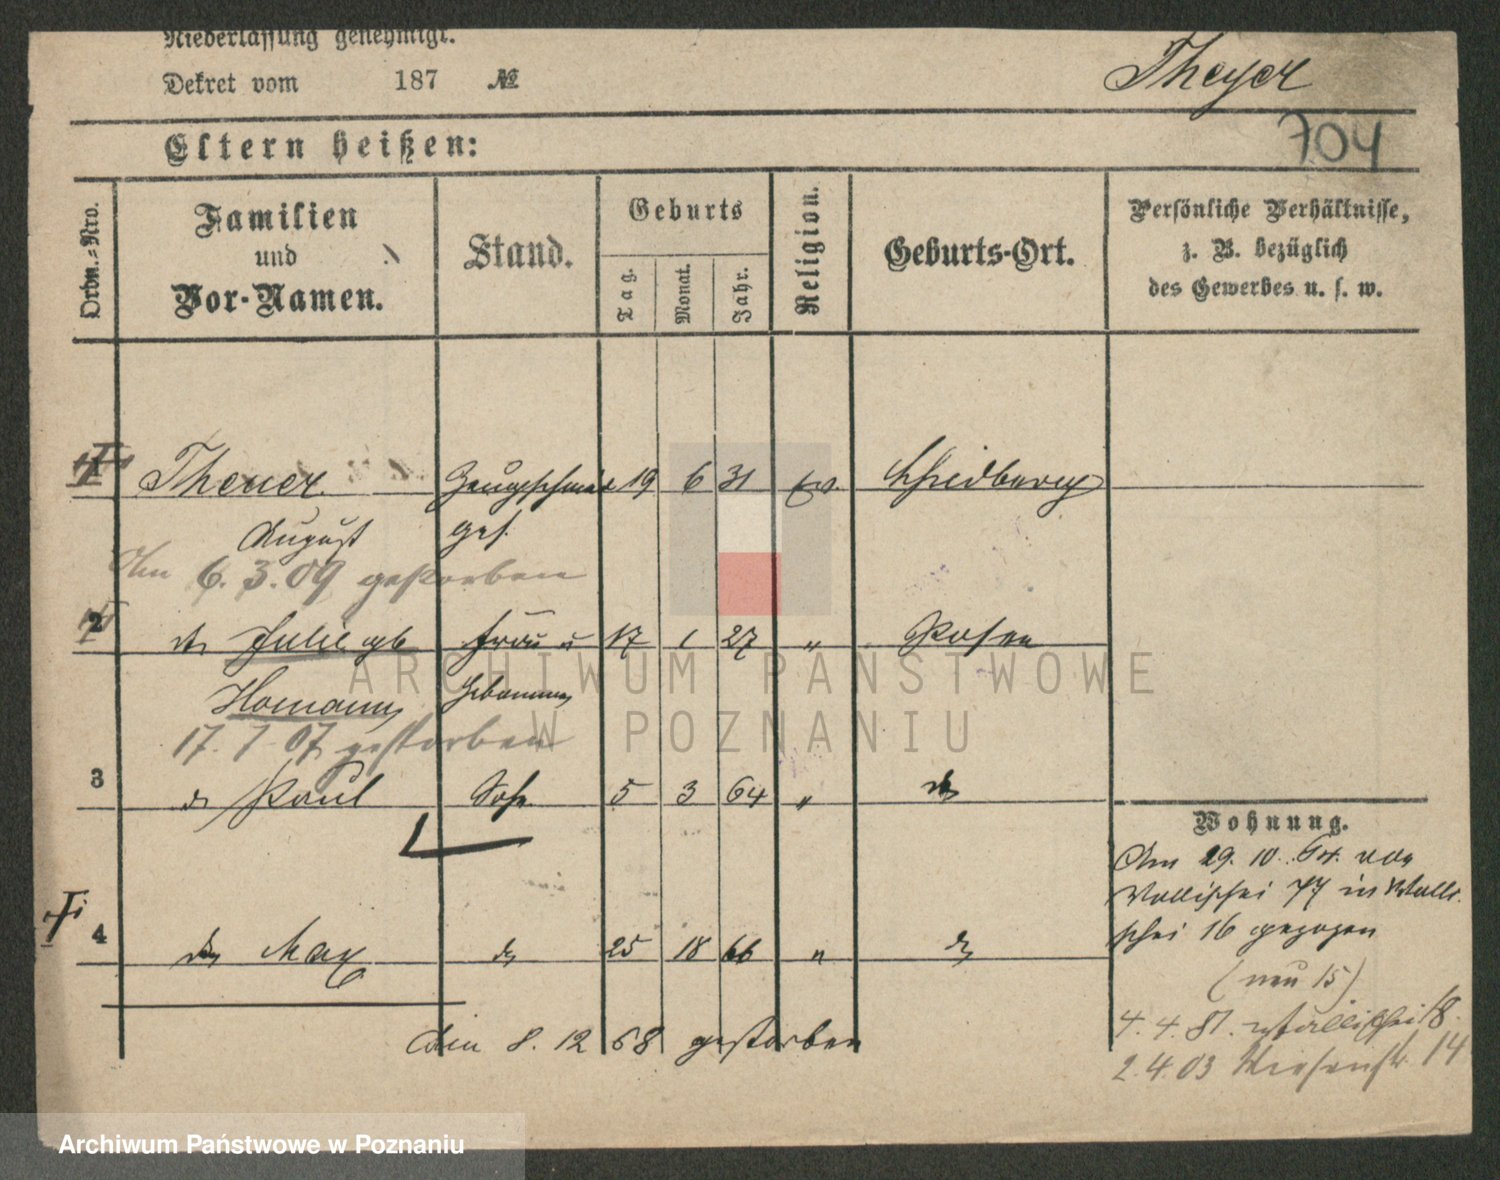 Niederlassung genehmigt.
Dekret vom 187 №
Theyer
704
Eltern heißen:
Ordn.-Nro.
Familien und Vor-Namen.
Stand.
Geburts
Tag.
Monat.
Jahr.
Religion.
Geburts-Ort.
Persönliche Verhältnisse,
z. B. bezüglich
des Gewerbes u. s. w.
1 Theuer 19 6 31 ev.
August ges.
Am 6. 3. 09 gestorben
2 Julie gb Frau 17 1 27 " Posen
Homann
17. 7 07 gestorben
3 Paul Sohn 5 3 64 "
4 Max 25 18 66 "
den 8. 12 68 gestorben
Wohnung.
Am 29. 10. von
Wallischei 77 in Walli-
schei 16 gezogen
(neu 15)
4. 4. 81. Wallischei 18.
2. 4. 03 Wiesenstr. 14
ARCHIWUM PAŃSTWOWE
W POZNANIU
Archiwum Państwowe w Poznaniu